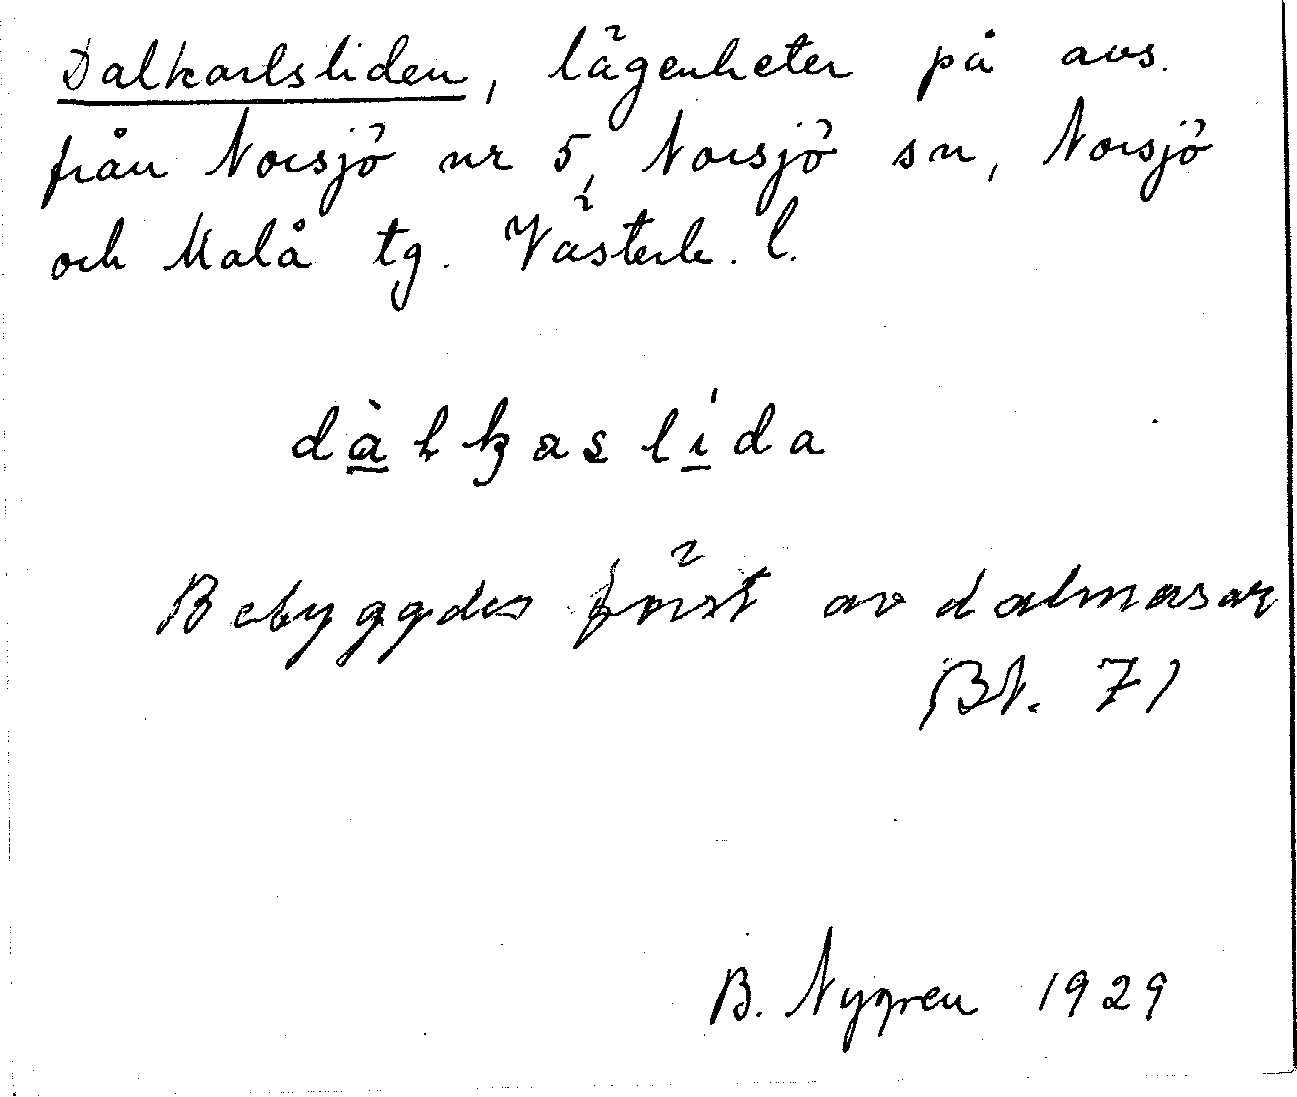 Dalkarlsliden, lägenheter på avs.
från Norsjö nr 5, Norsjö sn, Norsjö
och Malå tg. Västerb. l.
dàlkaslída
Bebyggdes först av dalmasar
Bt. 71
B. Nygren 1929